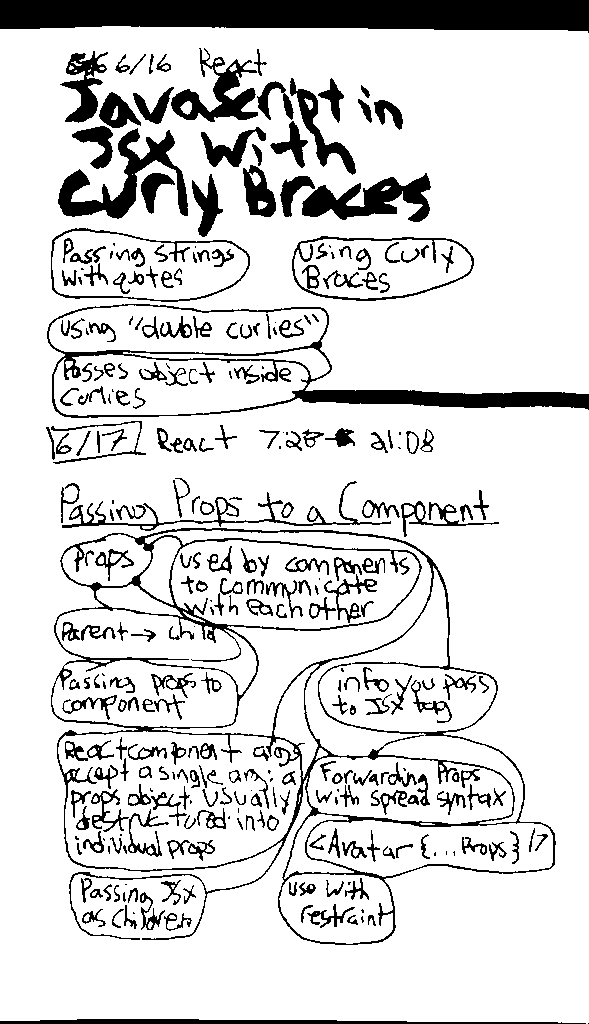 6/16 React
JavaScript in
JSX With
Curly Braces
Passing strings
with quotes
Using Curly
Braces
Using "double curlies"
Passes object inside
curlies
6/17 React 7:28 21:08
Passing Props to a Component
Props
used by components
to communicate
with each other
Parent → child
Passing props to
component
info you pass
to JSX tag
React component args
accept a single arg: a
props object. Usually
destructured into
individual props
Forwarding Props
with spread syntax
<Avatar {...Props} />
Passing JSX
as children
use with
restraint